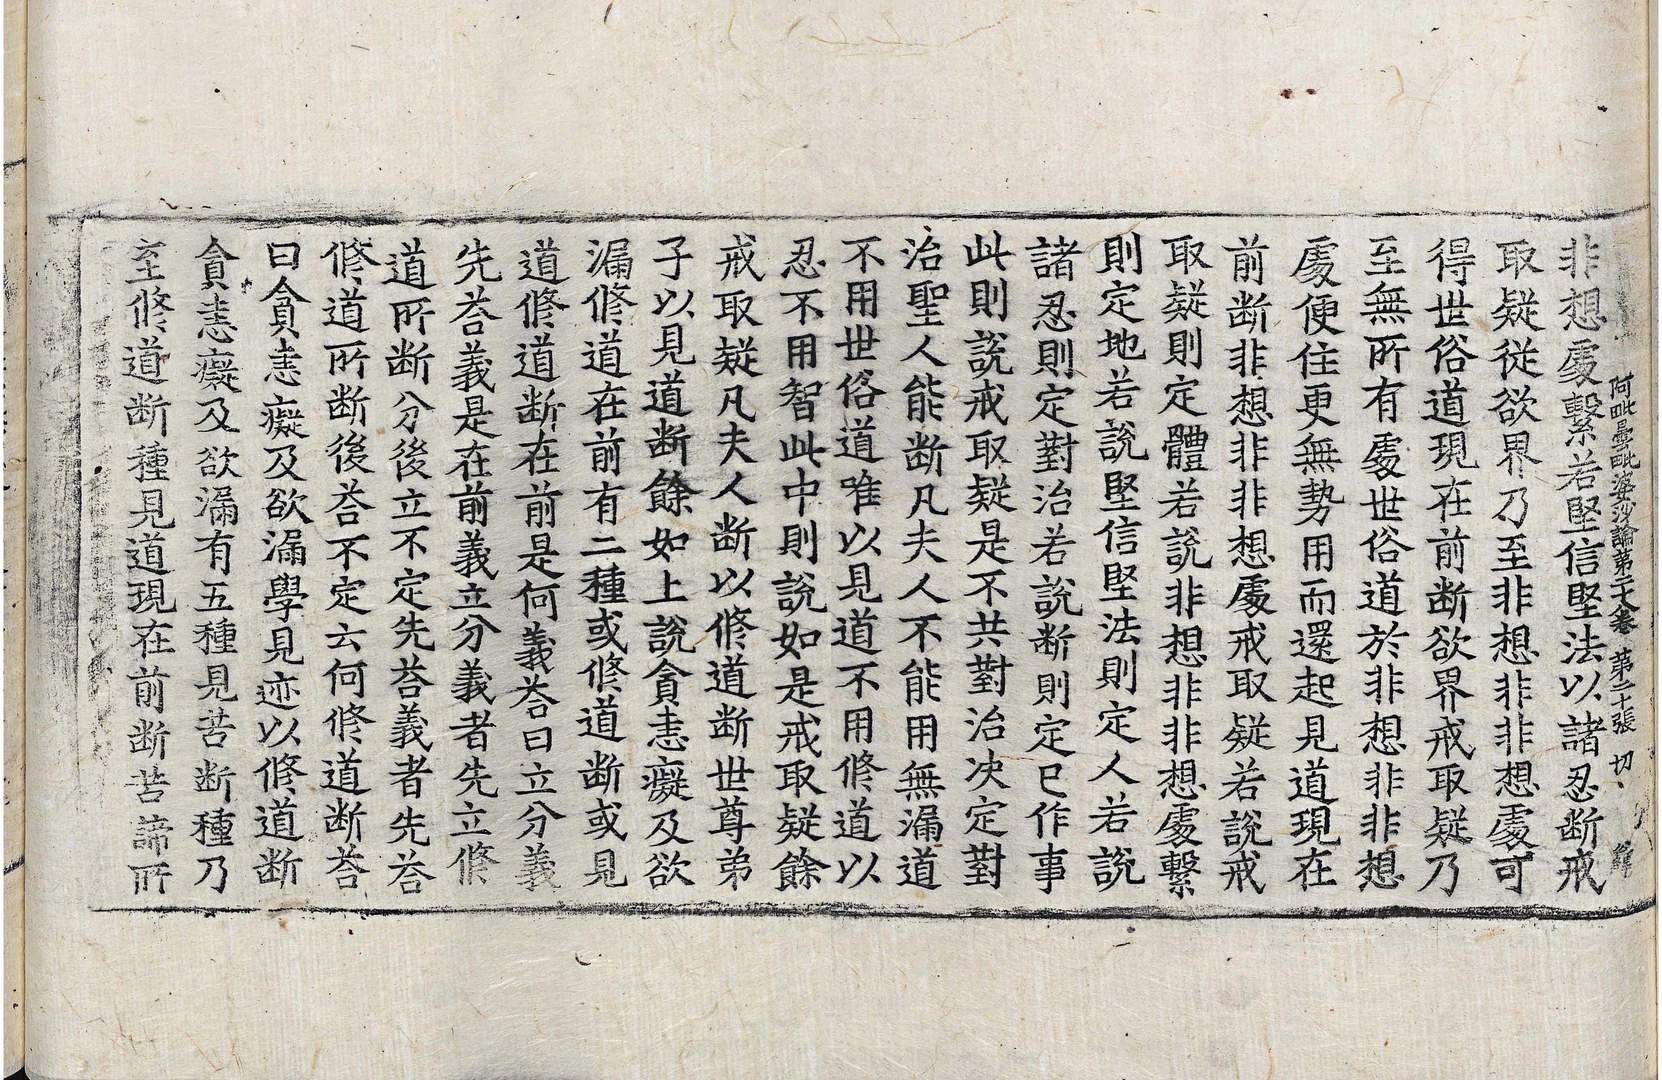 阿毗曇毗婆沙論第二六卷 第二十張 切
非想處繫若堅信堅法以諸忍断戒
取疑従欲界乃至非想非非想處可
得世俗道現在前断欲界戒取疑乃
至無所有處世俗道於非想非非想
處便住更無勢用而還起見道現在
前断非想非非想處戒取疑若說戒
取疑則定體若說非想非非想處繫
則定地若說堅信堅法則定人若說
諸忍則定對治若說断則定已作事
此則說戒取疑是不共對治決定對
治聖人能断凡夫人不能用無漏道
不用世俗道唯以見道不用修道以
忍不用智此中則說如是戒取疑餘
戒取疑凡夫人断以修道断世尊弟
子以見道断餘如上說貪恚癡及欲
漏修道在前有二種或修道断或見
道修道断在前是何義荅曰立分義
先荅義是在前義立分義者先立修
道所断分後立不定先荅義者先荅
修道所断後荅不定云何修道断荅
曰貪恚癡及欲漏學見迹以修道断
貪恚癡及欲漏有五種見苦断種乃
至修道断種見道現在前断苦諦所